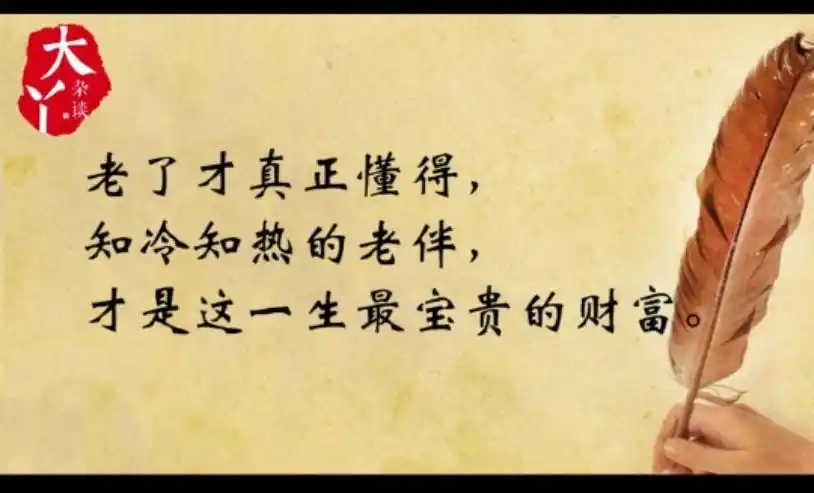 大丫
杂谈
老了才真正懂得，
知冷知热的老伴，
才是这一生最宝贵的财富。